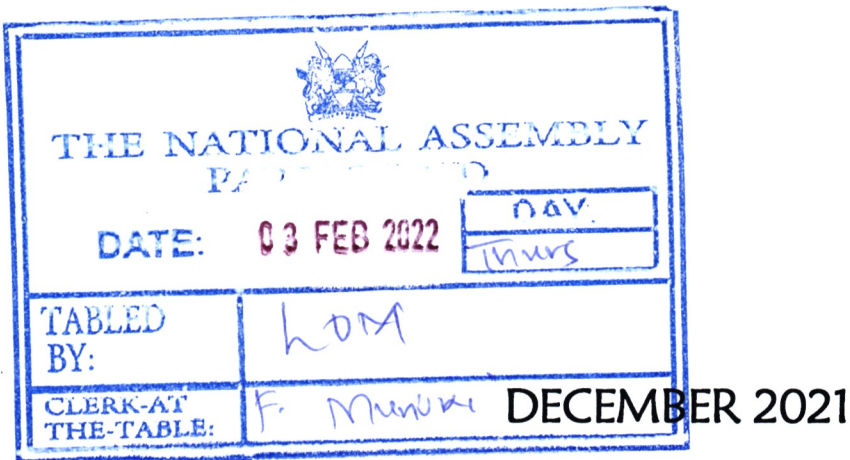 THE NATIONAL ASSEMBLY
DATE: 03 FEB 2022
DAY.
Thurs
TABLED BY:
LOM
CLERK-AT THE-TABLE:
F.
DECEMBER 2021